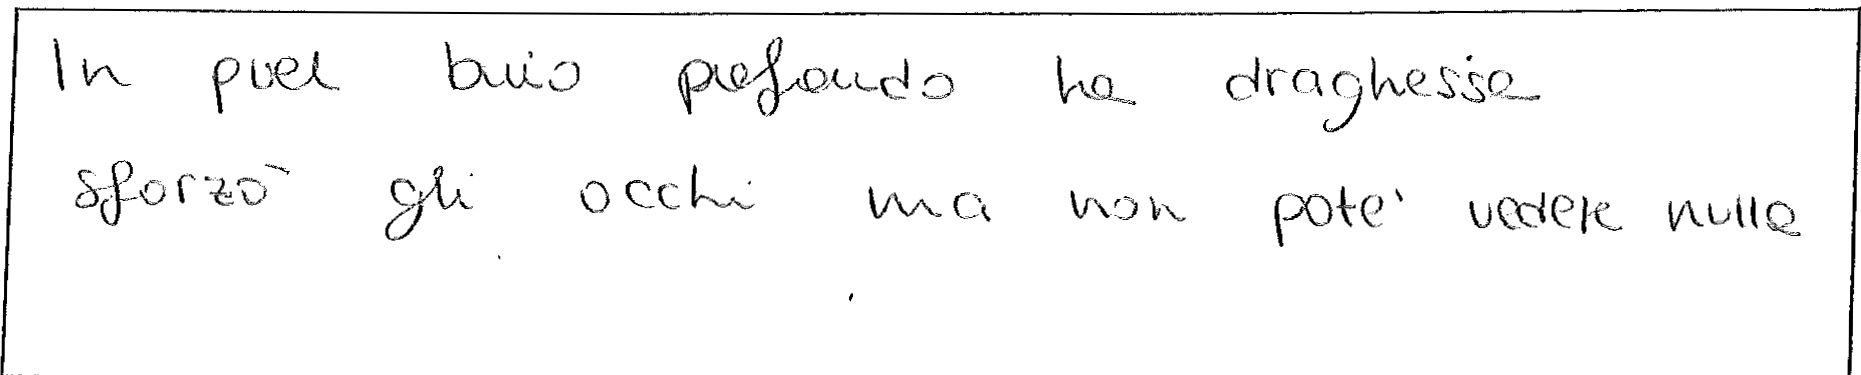 In quel buio profondo la draghessa
sforzò gli occhi ma non potè vedere nulla